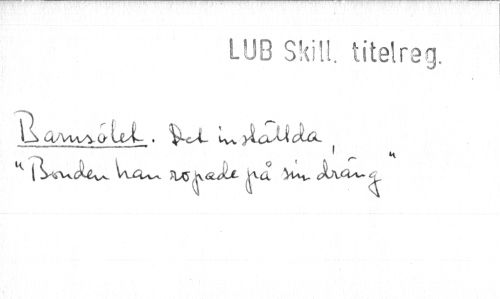 LUB Skill. titelreg.
Barnsölet. Det inställda,
"Bonden han ropade på sin dräng"